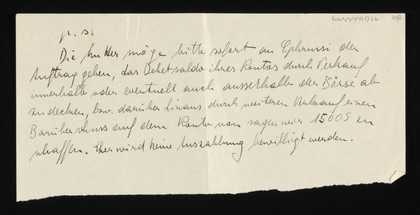 p. s.
Die Mutter möge bitte sofort an Ephrussi den
Auftrag geben, das Debetsaldo ihres Kontos durch Verkauf
innerhalb oder eventuell auch ausserhalb der Börse ab
zudecken, bzw. darüber hinaus durch weiteren Verkauf einen
Barüberschuss auf dem Konto von sagen wir 1500 S zu
schaffen. Eher wird keine Auszahlung bewilligt werden.